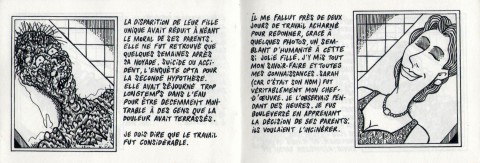 LA DISPARITION DE LEUR FILLE
UNIQUE AVAIT RÉDUIT À NÉANT
LE MORAL DE SES PARENTS.
ELLE NE FUT RETROUVÉ QUE
QUELQUES SEMAINES APRÈS
SA NOYADE. SUICIDE OU ACCI-
DENT, L'ENQUÊTE OPTA POUR
LA SECONDE HYPOTHÈSE.
ELLE AVAIT SÉJOURNÉ TROP
LONGTEMPS DANS L'EAU
POUR ÊTRE DÉCEMMENT MON-
TRABLE À DES GENS QUE LA
DOULEUR AVAIT TERRASSÉS.
JE DOIS DIRE QUE LE TRAVAIL
FUT CONSIDÉRABLE.
IL ME FALLUT PRÈS DE DEUX
JOURS DE TRAVAIL ACHARNÉ
POUR REDONNER, GRÂCE À
QUELQUES PHOTOS, UN SEM-
BLANT D'HUMANITÉ À CETTE
SI JOLIE FILLE. J'Y MIS TOUT
MON SAVOIR-FAIRE ET TOUTES
MES CONNAISSANCES. SARAH
(CAR C'ÉTAIT SON NOM) FUT
VÉRITABLEMENT MON CHEF-
D'ŒUVRE. JE L'OBSERVAIS PEN-
DANT DES HEURES. JE FUS
BOULEVERSÉ EN APPRENANT
LA DÉCISION DE SES PARENTS:
ILS VOULAIENT L'INCINÉRER.